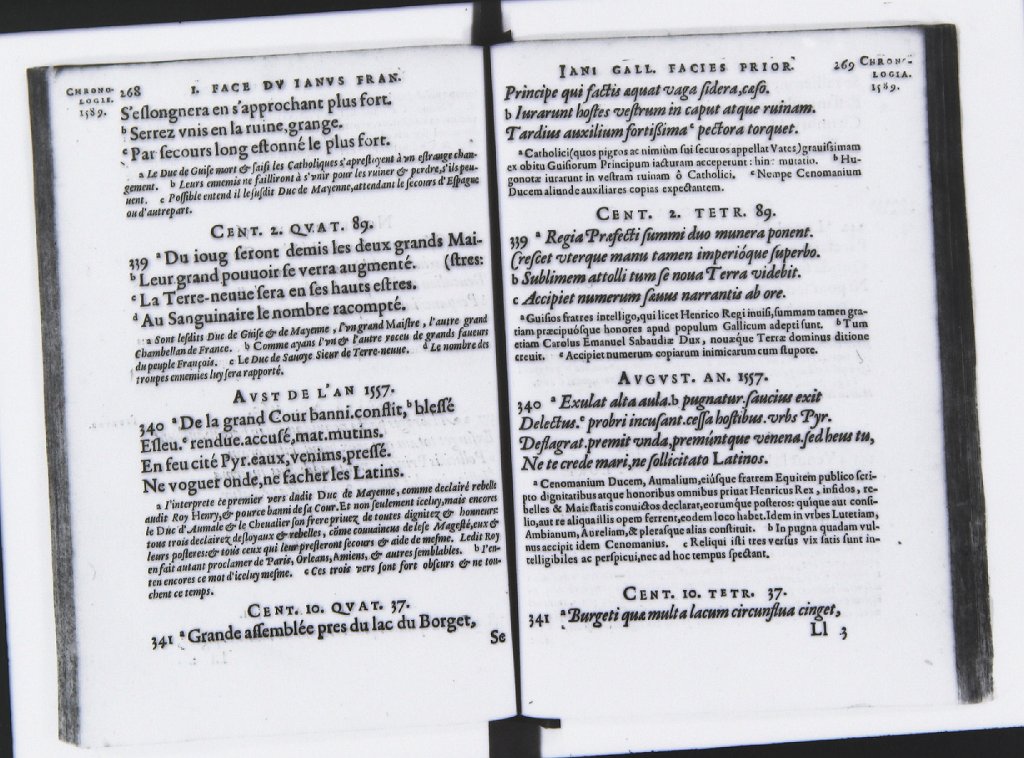 CHRONO-
LOGIE.
1589.
268 I. FACE DV IANVS FRAN.
S'eslongnera en s'approchant plus fort.
b Serrez vnis en la ruine, grange.
c Par secours long estonné le plus fort.
a Le Duc de Guise mort & saisi les Catholiques s'aprestoyent à vn estrange chan-
gement. b Leurs ennemis ne failliront à s'vnir pour les ruiner & perdre, s'ils peu-
uent. c Possible entend il le susdit Duc de Mayenne, attendant le secours d'Espagne
ou d'autre part.
CENT. 2. QVAT. 89.
339 a Du ioug seront demis les deux grands Mai-
b Leur grand pouuoir se verra augmenté. (stres:
c La Terre-neuue sera en ses hauts estres.
d Au Sanguinaire le nombre racompté.
a Sont lesdits Duc de Guise & de Mayenne, l'vn grand Maistre, l'autre grand
Chambellan de France. b Comme ayans l'vn & l'autre receu de grands faueurs
du peuple François. c Le Duc de Sauoye Sieur de Terre-neuue. d Le nombre des
troupes ennemies luy sera rapporté.
AVST DE L'AN 1557.
340 a De la grand Cour banni. conflit, b blessé
Esleu. c rendue. accusé, mat. mutins.
En feu cité Pyr. eaux, venims, pressé.
Ne voguer onde, ne facher les Latins.
a J'interprete ce premier vers dudit Duc de Mayenne, comme declairé rebelle
audit Roy Henry, & pource banni de sa Cour. Et non seulement iceluy, mais encores
le Duc d'Aumale & le Cheualier son frere priuez de toutes dignitez & honneurs:
tous trois declairez desloyaux & rebelles, cõme conuaincus de lese Magesté, eux &
leurs posteres: & tous ceux qui leur presteront secours & aide de mesme. Ledit Roy
en fait autant proclamer de Paris, Orleans, Amiens, & autres semblables. b J'en-
ten encores ce mot d'iceluy mesme. c Ces trois vers sont fort obscurs & ne tou-
chent ce temps.
CENT. 10. QVAT. 37.
341 a Grande assemblée pres du lac du Borget,
Se
IANI GALL. FACIES PRIOR. 269
CHRONO-
LOGIA.
1589.
Principe qui factis æquat vaga sidera, cæso.
b Iurarunt hostes vestrum in caput atque ruinam.
Tardius auxilium fortissima c pectora torquet.
a Catholici (quos pigros ac nimium sui securos appellat Vates) grauissimam
ex obitu Guisiorum Principum iacturam acceperunt: hinc mutatio. b Hu-
gonotæ iurarunt in vestram ruinam ô Catholici. c Nempe Cenomanium
Ducem aliunde auxiliares copias expectantem.
CENT. 2. TETR. 89.
339 a Regia Præfecti summi duo munera ponent.
Crescet vterque manu tamen imperióque superbo.
b Sublimem attolli tum se noua Terra videbit.
c Accipiet numerum sæuus narrantis ab ore.
a Guisios fratres intelligo, qui licet Henrico Regi inuisi, summam tamen gra-
tiam præcipuósque honores apud populum Gallicum adepti sunt. b Tum
etiam Carolus Emanuel Sabaudiæ Dux, nouæque Terræ dominus ditione
creuit. c Accipiet numerum copiarum inimicarum cum stupore.
AVGVST. AN. 1557.
340 a Exulat alta aula. b pugnatur. saucius exit
Delectus. c probri incusant. cessa hostibus. vrbs Pyr.
Deflagrat. premit vnda, premúntque venena. sed heus tu,
Ne te crede mari, ne sollicitato Latinos.
a Cenomanium Ducem, Aumalium, eiúsque fratrem Equitem publico scri-
pto dignitatibus atque honoribus omnibus priuat Henricus Rex, infidos, re-
belles & Maiestatis conuictos declarat, eorumque posteros: quíque aut consi-
lio, aut re aliqua illis opem ferrent, eodem loco habet. Idem in vrbes Lutetiam,
Ambianum, Aureliam, & plerasque alias constituit. b In pugna quadam vul-
nus accipit idem Cenomanius. c Reliqui isti tres versus vix satis sunt in-
telligibiles ac perspicui, nec ad hoc tempus spectant.
CENT. 10. TETR. 37.
341 a Burgeti quæ multa lacum circunflua cinget,
Ll 3